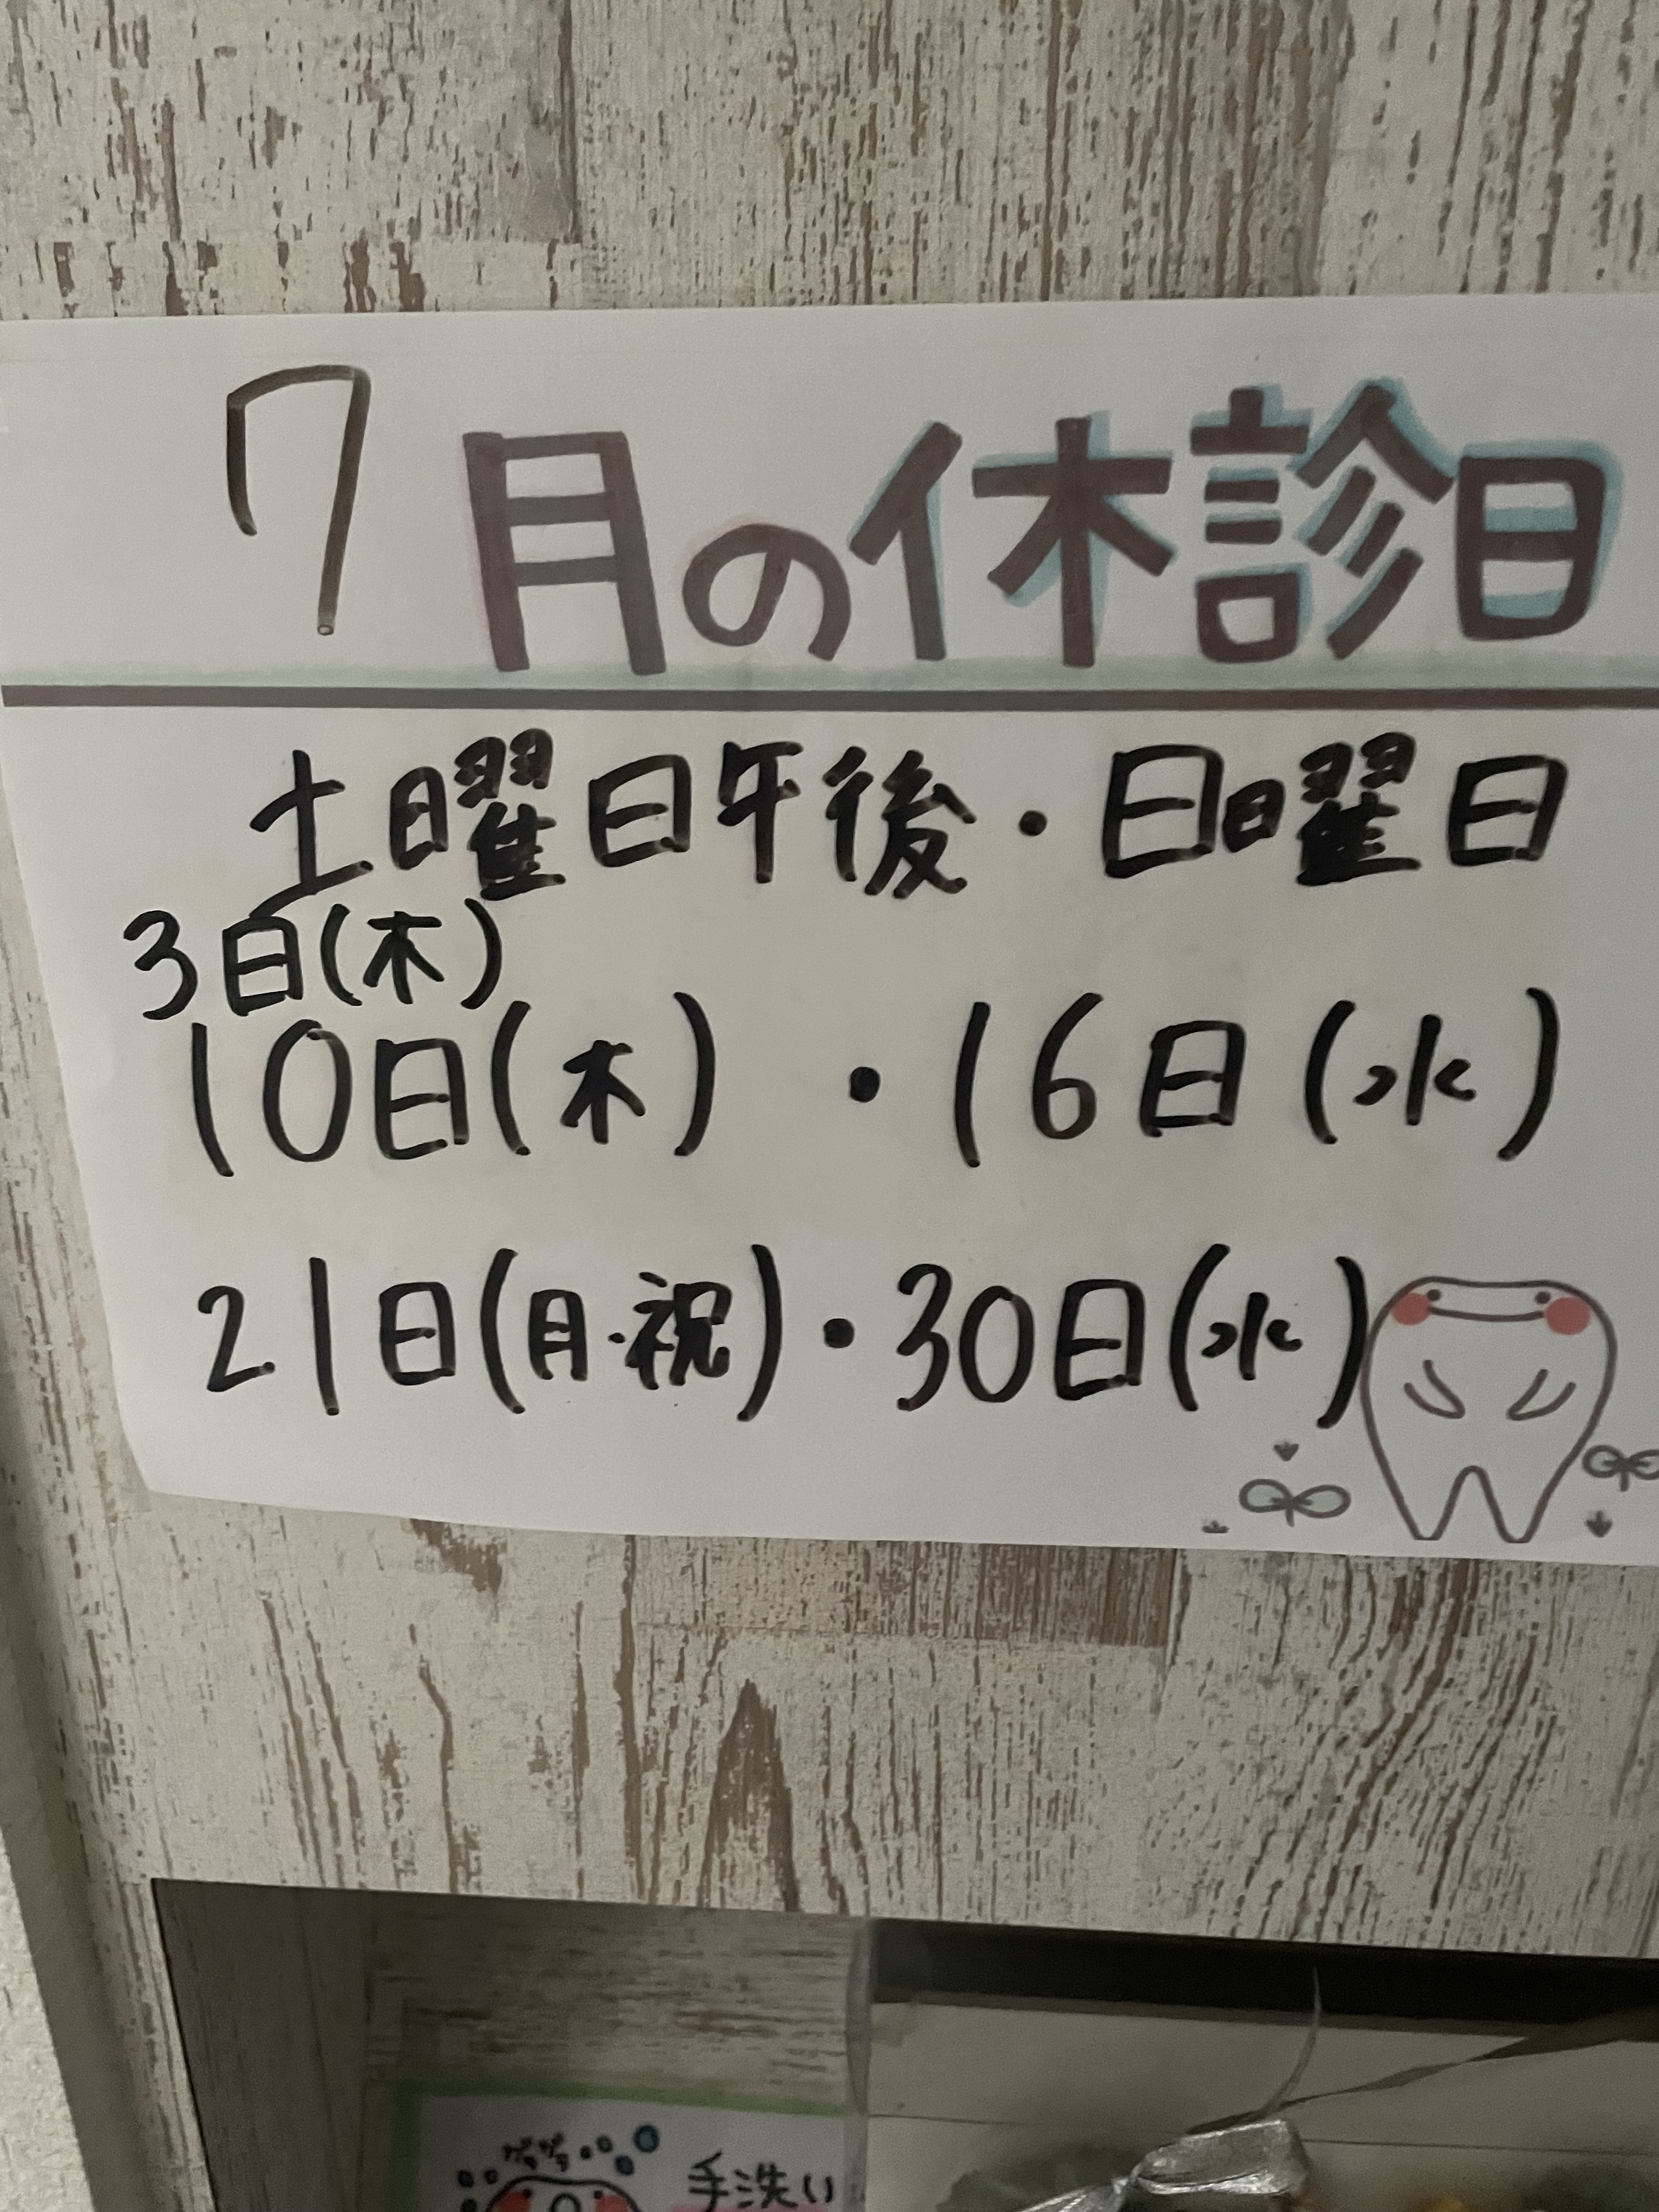 7月の休診日
土曜日午後・日曜日
3日(木)
10日(木)・16日(水)
21日(月・祝)・30日(水)
手洗い